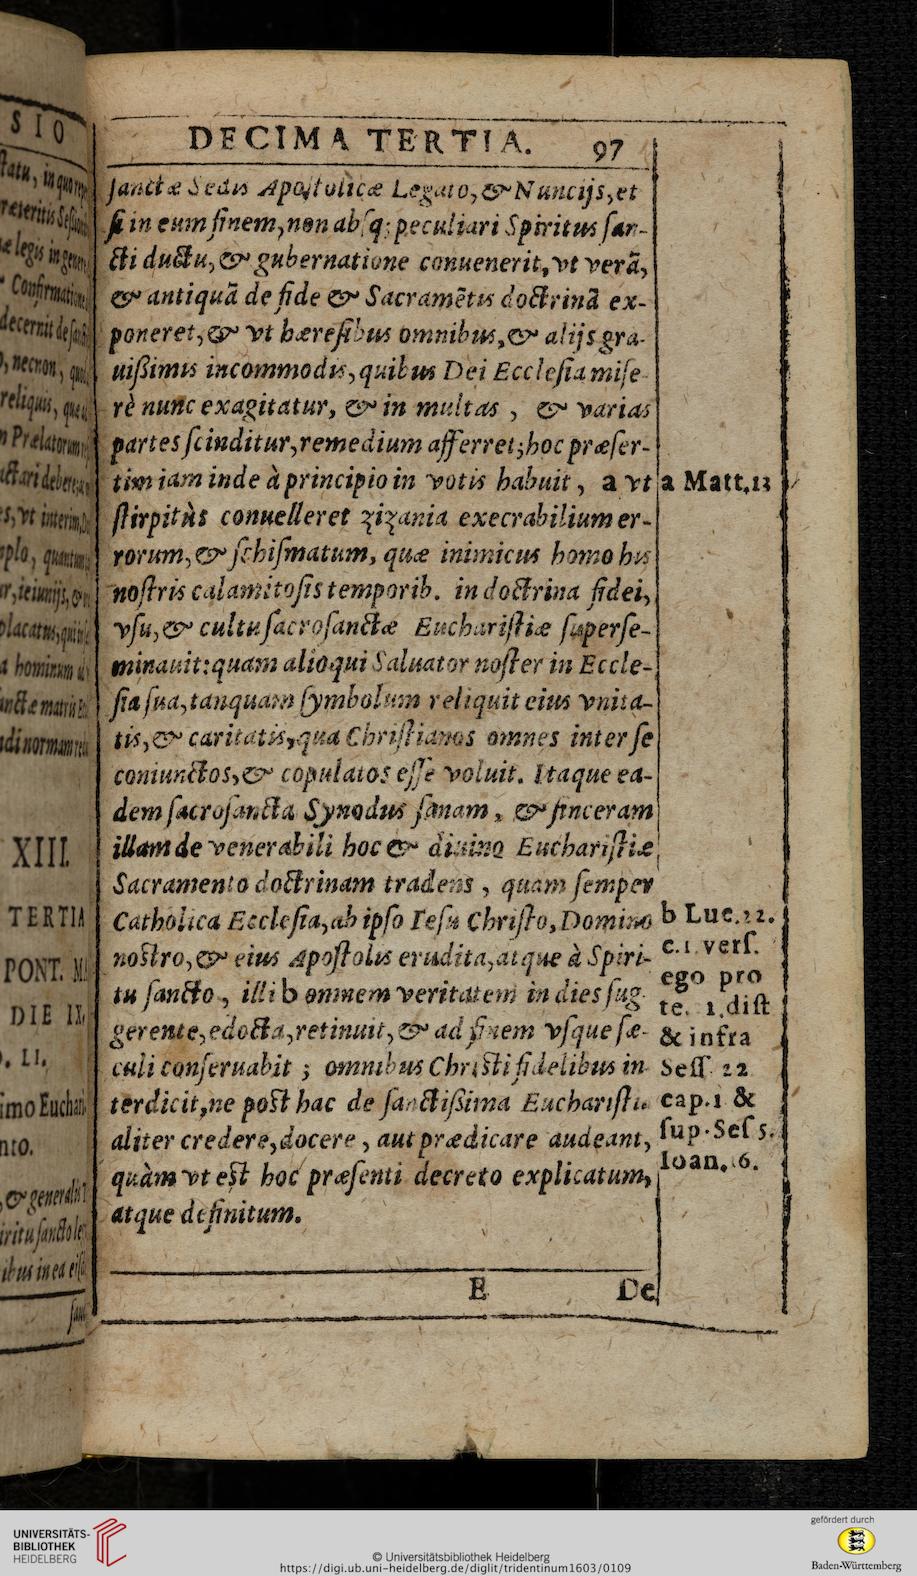 DECIMA TERTIA. 97
sanctæ Sedis Apostolicæ Legato, & Nuncijs, et
si in eum finem, non absq; peculiari Spiritus san-
cti ductu, & gubernatione conuenerit, vt verā,
& antiquā de fide & Sacramētis doctrinā ex-
poneret, & vt hæresibus omnibus, & alijs gra-
uißimis incommodis, quibus Dei Ecclesia mise-
rè nunc exagitatur, & in multas, & varias
partes scinditur, remedium afferret; hoc præser-
tim iam inde à principio in votis habuit, a vt
stirpitùs conuelleret zizania execrabilium er-
rorum, & schismatum, quæ inimicus homo his
nostris calamitosis temporib. in doctrina fidei,
vsu, & cultu sacrosanctæ Eucharistiæ superse-
minauit: quam alioqui Saluator noster in Eccle-
sia sua, tanquam symbolum reliquit eius vnita-
tis, & caritatis, qua Christianos omnes inter se
coniunctos, & copulatos esse voluit. Itaque ea-
dem sacrosancta Synodus sanam, & sinceram
illam de venerabili hoc & diuino Eucharistiæ
Sacramento doctrinam tradens, quam semper
Catholica Ecclesia, ab ipso Iesu Christo, Domino
nostro, & eius Apostolis erudita, atque à Spiri-
tu sancto, illi b omnem veritatem in dies sug-
gerente, edocta, retinuit, & ad finem vsque sæ-
culi conseruabit; omnibus Christi fidelibus in-
terdicit, ne post hac de sanctißima Eucharistia
aliter credere, docere, aut prædicare audeant,
quàm vt est hoc præsenti decreto explicatum,
atque definitum.
E De
a Matt. 13
b Luc. 22.
c. 1. vers.
ego pro
te. 1. dist
& infra
Sess. 22
cap. 1 &
sup. Ses 5.
Ioan. 16.
SIO
XIII.
TERTIA
PONT.
DIE
LI.
UNIVERSITÄTS-
BIBLIOTHEK
HEIDELBERG
© Universitätsbibliothek Heidelberg
https://digi.ub.uni-heidelberg.de/diglit/tridentinum1603/0109
gefördert durch
Baden-Württemberg